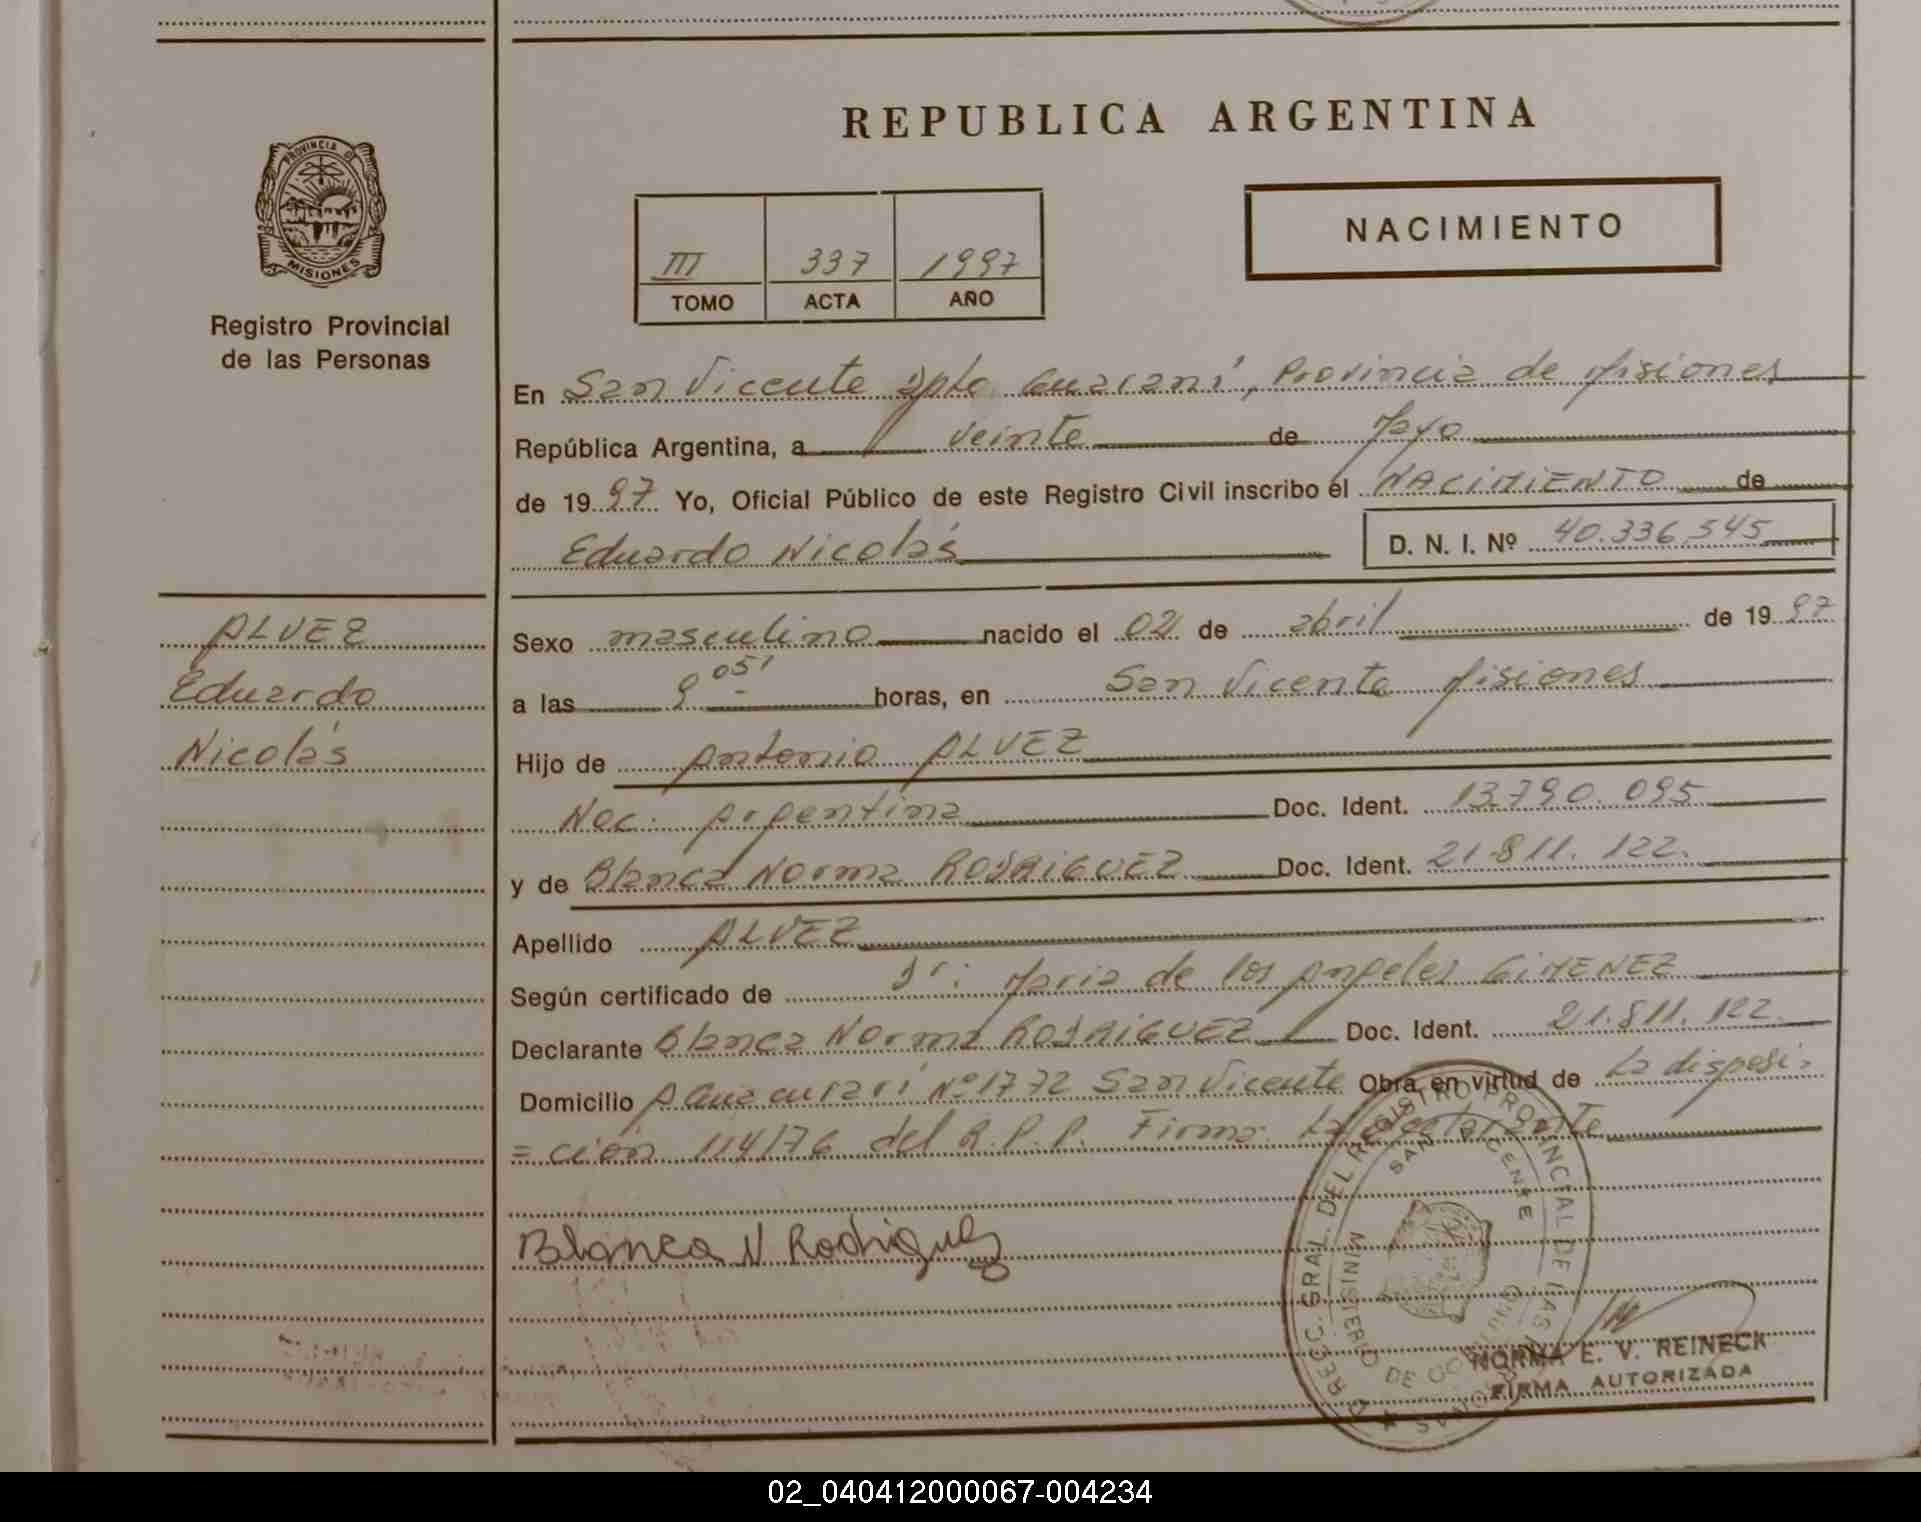 REPUBLICA ARGENTINA
PROVINCIA DE
MISIONES
Registro Provincial
de las Personas
NACIMIENTO
III 337 1997
TOMO ACTA AÑO
En San Vicente Dpto. Guaraní, Provincia de Misiones
República Argentina, a veinte de Mayo
de 1997 Yo, Oficial Público de este Registro Civil inscribo el NACIMIENTO de
Eduardo Nicolás D. N. I. Nº 40.336.545
ALVEZ
Eduardo
Nicolás
Sexo masculino nacido el 02 de abril de 1997
a las 9 05' horas, en San Vicente Misiones
Hijo de Antonio ALVEZ
Nac. Argentina Doc. Ident. 13.790.095
y de Blanca Norma RODRIGUEZ Doc. Ident. 21.811.122.
Apellido ALVEZ
Según certificado de Maria de los Angeles GIMENEZ
Declarante Blanca Norma RODRIGUEZ Doc. Ident. 21.811.122.
Domicilio A Guacurarí Nº 1772 San Vicente Obra en virtud de la disposi=
=ción 114/76 del R.P.P. Firma: La declarante
Blanca N Rodriguez
DEL REGISTRO PROVINCIAL DE LAS PERSONAS
SAN VICENTE
MINISTERIO DE
NORMA E. V. REINECK
FIRMA AUTORIZADA
02_040412000067-004234